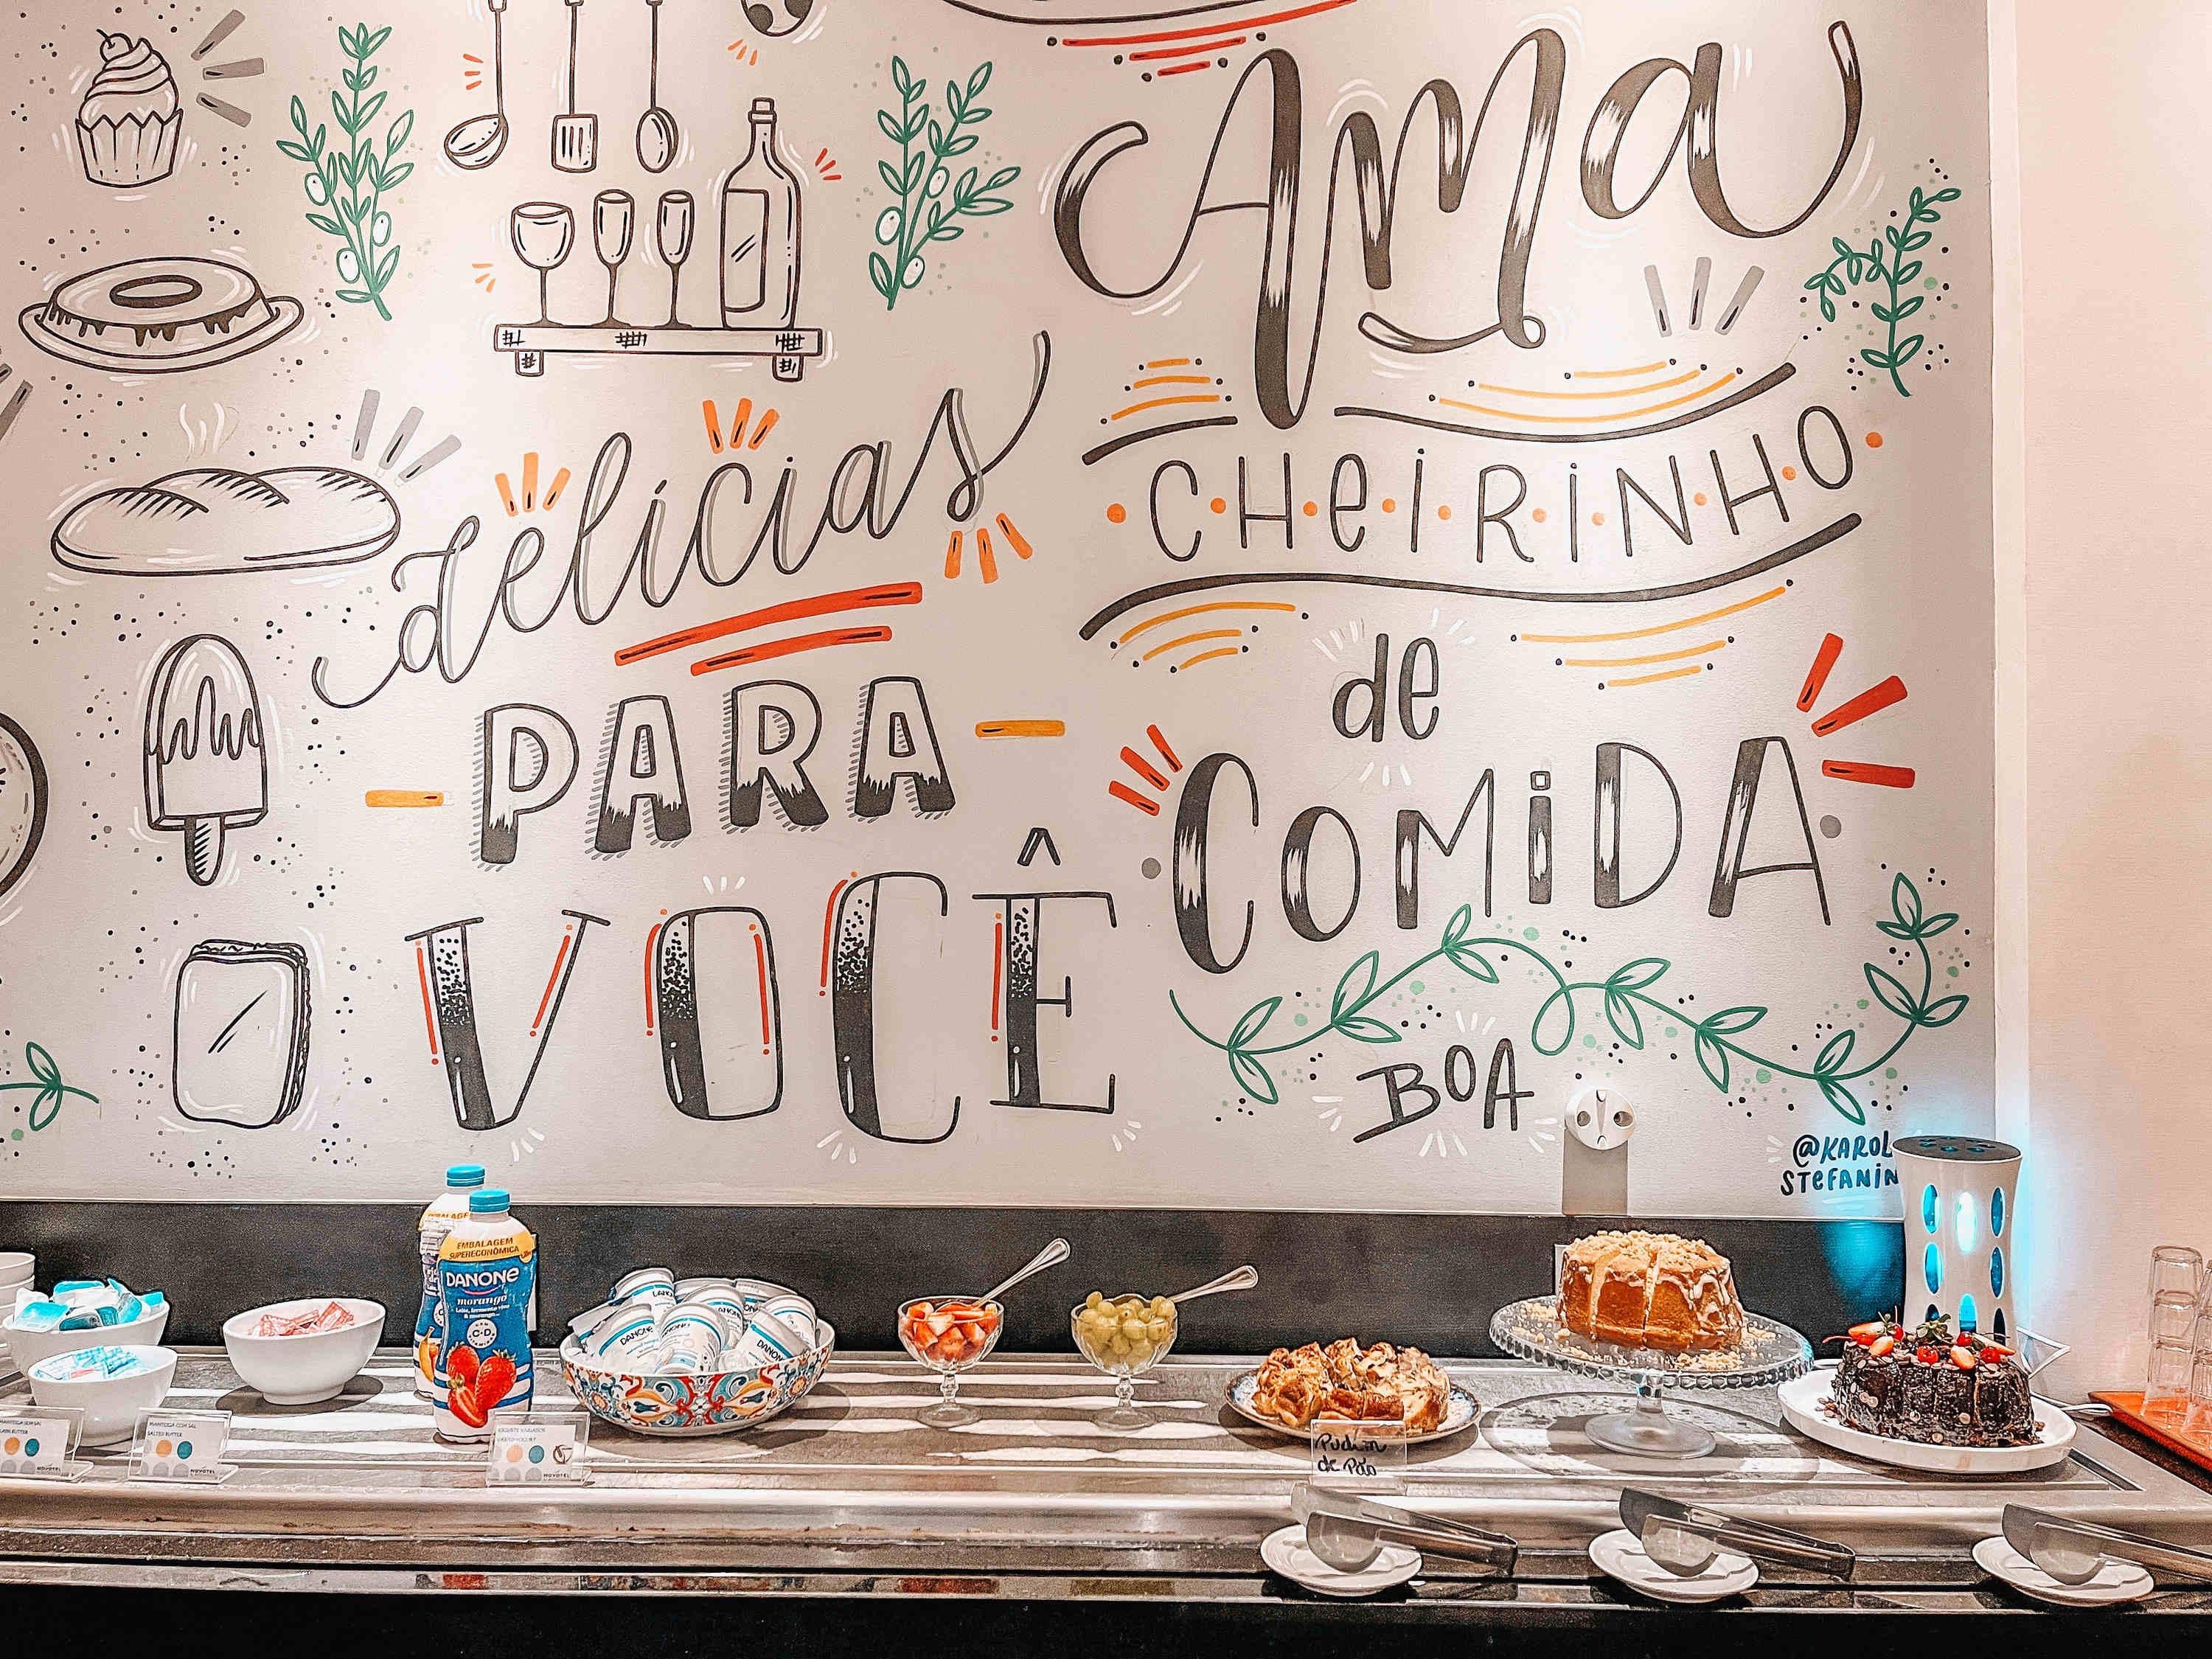 delícias
PARA
VOCÊ
Ama
CHEIRINHO
de
COMIDA
BOA
@KAROL
STEFANIN
EMBALAGEM
SUPERECONÔMICA
DANONE
morango
DANONE
DANONE
DANONE
MANTEIGA COM SAL
SALTED BUTTER
NOVOTEL
NOVOTEL
NOVOTEL
Pudim
de Pão